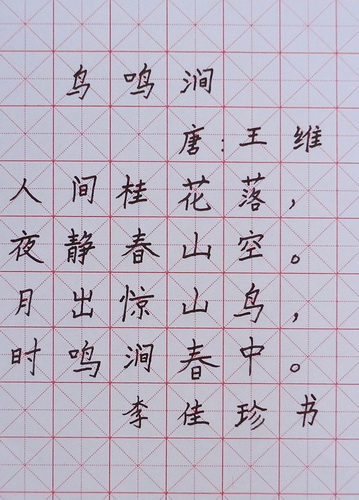 鸟鸣涧
唐:王维
人间桂花落,
夜静春山空。
月出惊山鸟,
时鸣涧春中。
李佳珍书